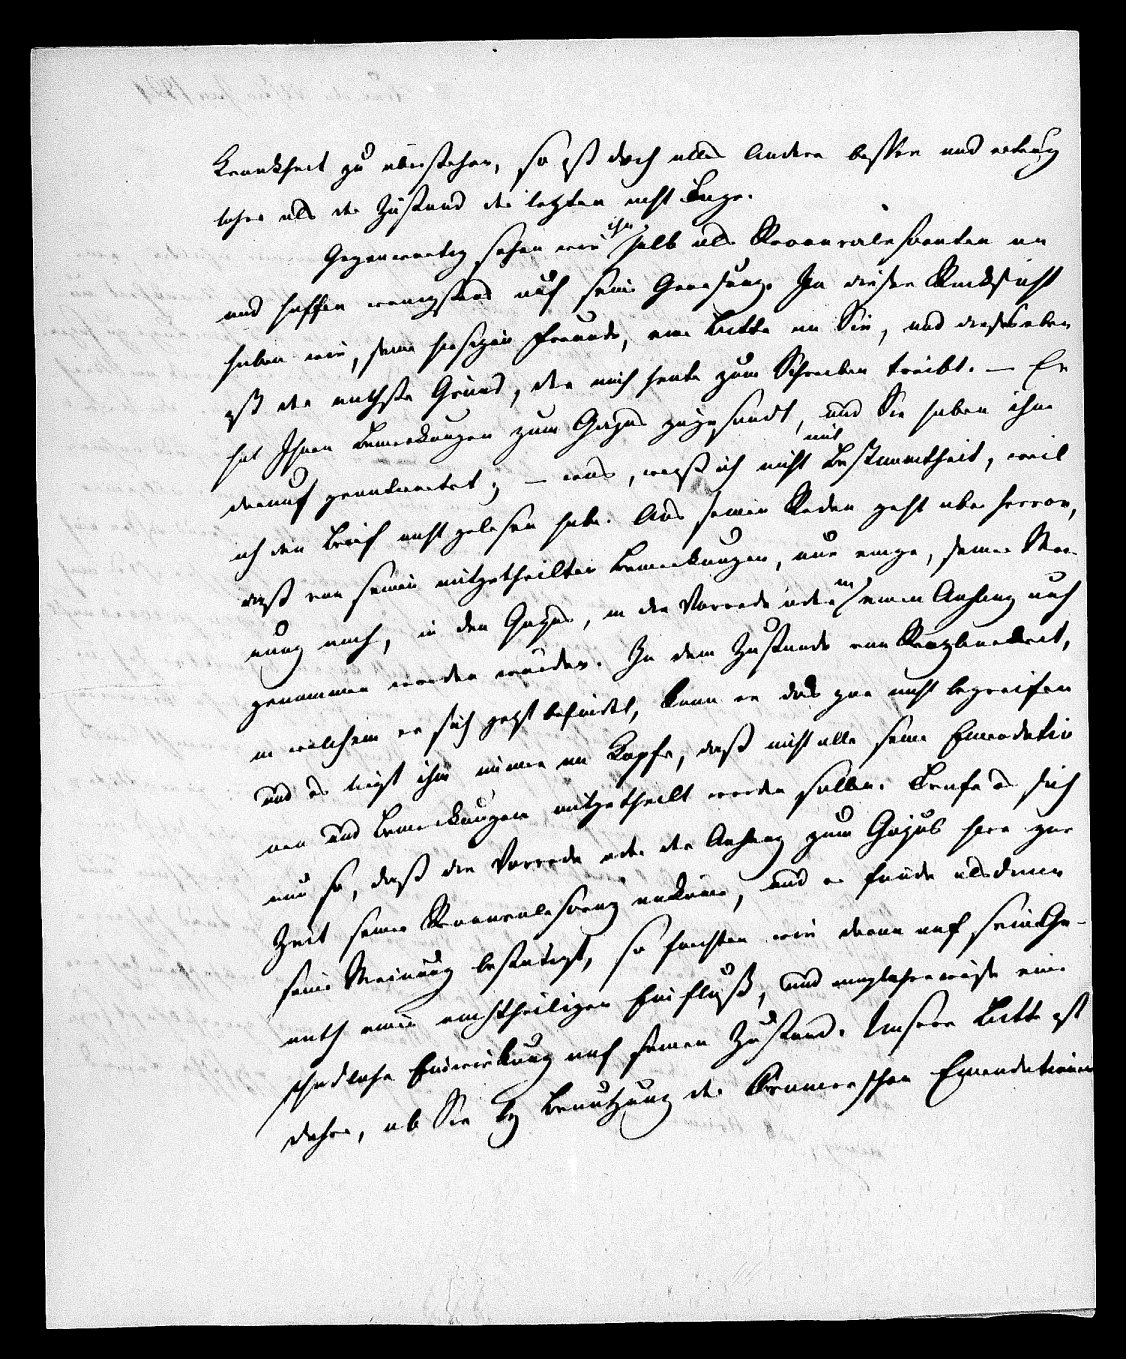 Krankheit zu überstehen, so ist doch alles Andere besser und erträg
licher als der Zustand der letzten acht Tage.
Gegenwärtig sehen wir ihn halb als Reconvalescenten an
und hoffen wenigstens auf seine Genesung. In dieser Rücksicht
haben wir, seine hiesigen Freunde, eine Bitte an Sie, und dieses eben
ist der nächste Grund, der mich heute zum Schreiben treibt. – Er
hat Ihnen Bemerkungen zum Gajus zugesandt, und Sie haben ihm
darauf geantwortet; – was, weiß ich nicht mit Bestimmtheit, weil
ich den Brief nicht gelesen habe. Aus seinen Reden geht aber hervor,
daß von seinen mitgetheilten Bemerkungen, nur einige, seiner Mei
nung nach, in den Gajus, in der Vorrede oder in einem Anhang auf
genommen werden würden. In dem Zustande von Reizbarkeit,
in welchem er sich jetzt befindet, kann er das gar nicht begreifen
und es liegt ihm immer im Kopfe, daß nicht alle seine Emendatio
nen und Bemerkungen mitgetheilt werden sollen. Träfe es sich
nun so, daß die Vorrede oder der Anhang zum Gajus hier zur
Zeit seiner Reconvalescenz ankäme, und er fände alsdann
seine Meinung bestätigt, so fürchten wir davon auf sein Ge-
müth einen nachtheiligen Einfluß, und möglicherweise eine
schädliche Einwirkung auf seinen Zustand. Unsere Bitte ist
daher, ob Sie bey Benutzung der Cramerschen Emendationen